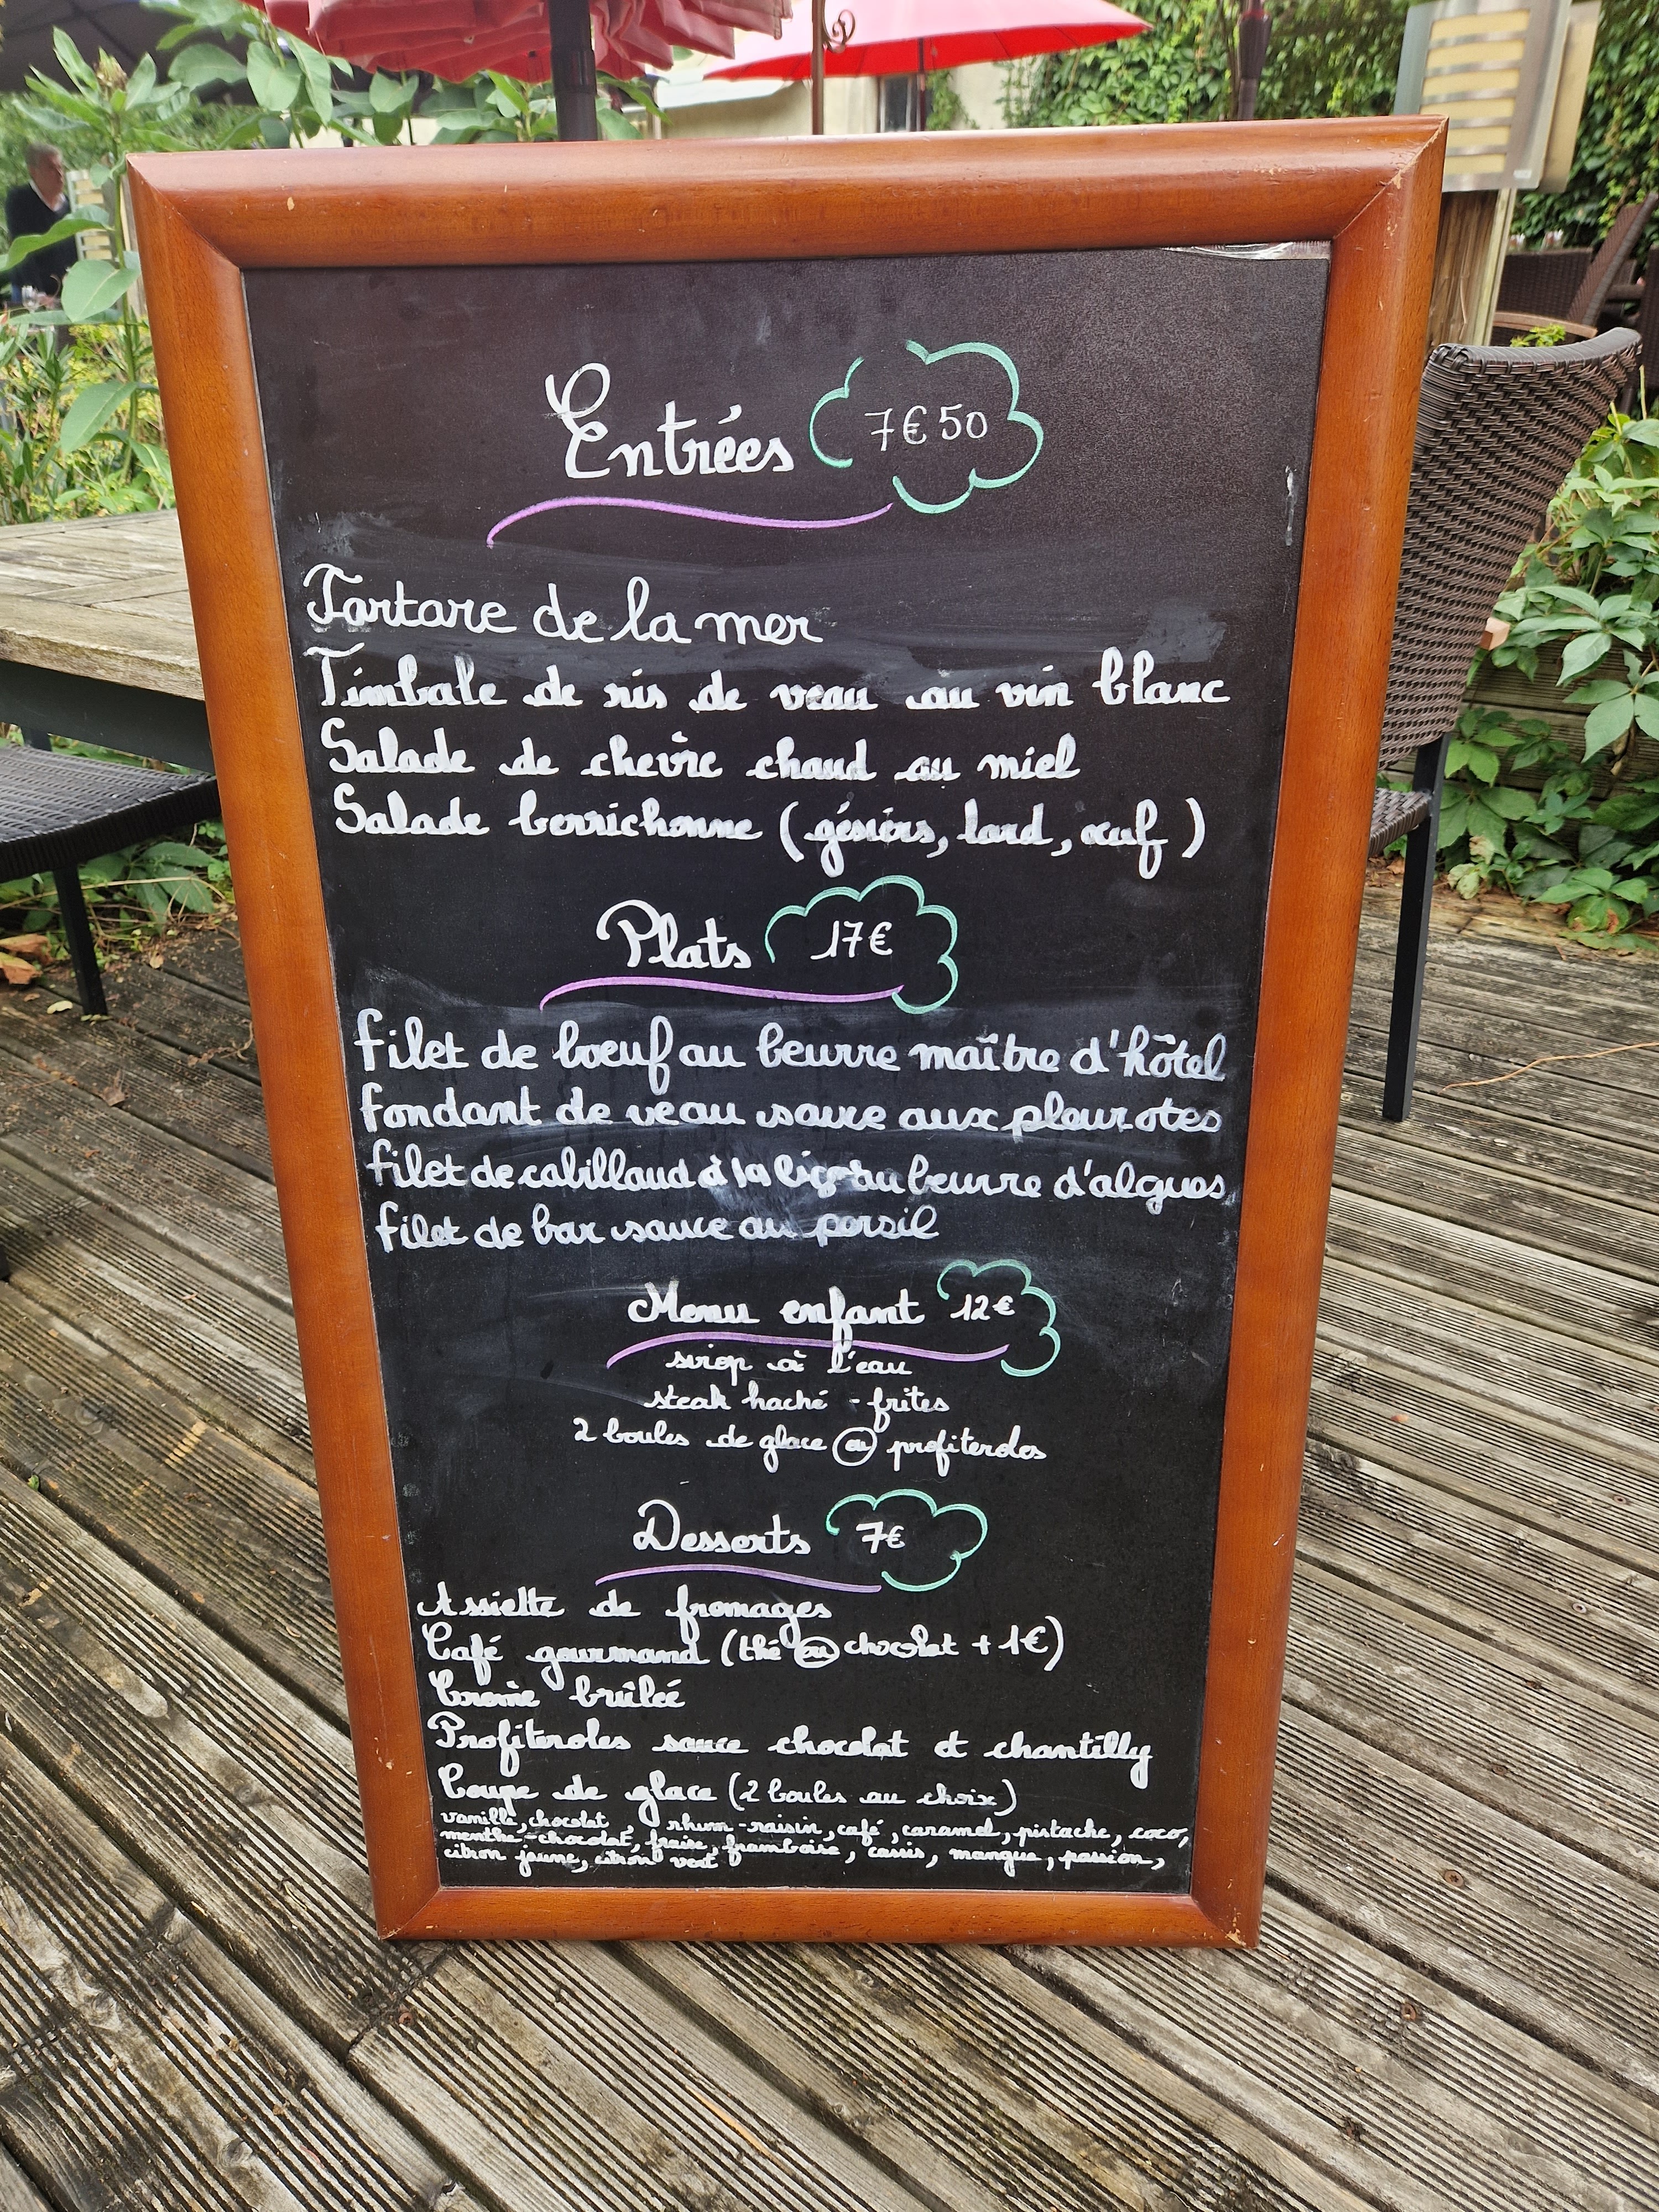 Entrées 7€50
Tartare de la mer
Timbale de ris de veau au vin blanc
Salade de chèvre chaud au miel
Salade berrichonne (gésiers, lard, œuf)
Plats 17€
filet de bœuf au beurre maître d'hôtel
fondant de veau sauce aux pleurotes
filet de cabillaud à la au beurre d'algues
filet de bar sauce au persil
Menu enfant 12€
sirop à l'eau
steak haché - frites
2 boules de glace ou profiteroles
Desserts 7€
Assiette de fromages
Café gourmand (thé ou chocolat + 1€)
Crème brûlée
Profiteroles sauce chocolat et chantilly
Coupe de glace (2 boules au choix)
vanille, chocolat, rhum-raisin, café, caramel, pistache, coco,
menthe-chocolat, fraise, framboise, cassis, mangue, passion,
citron jaune, citron vert